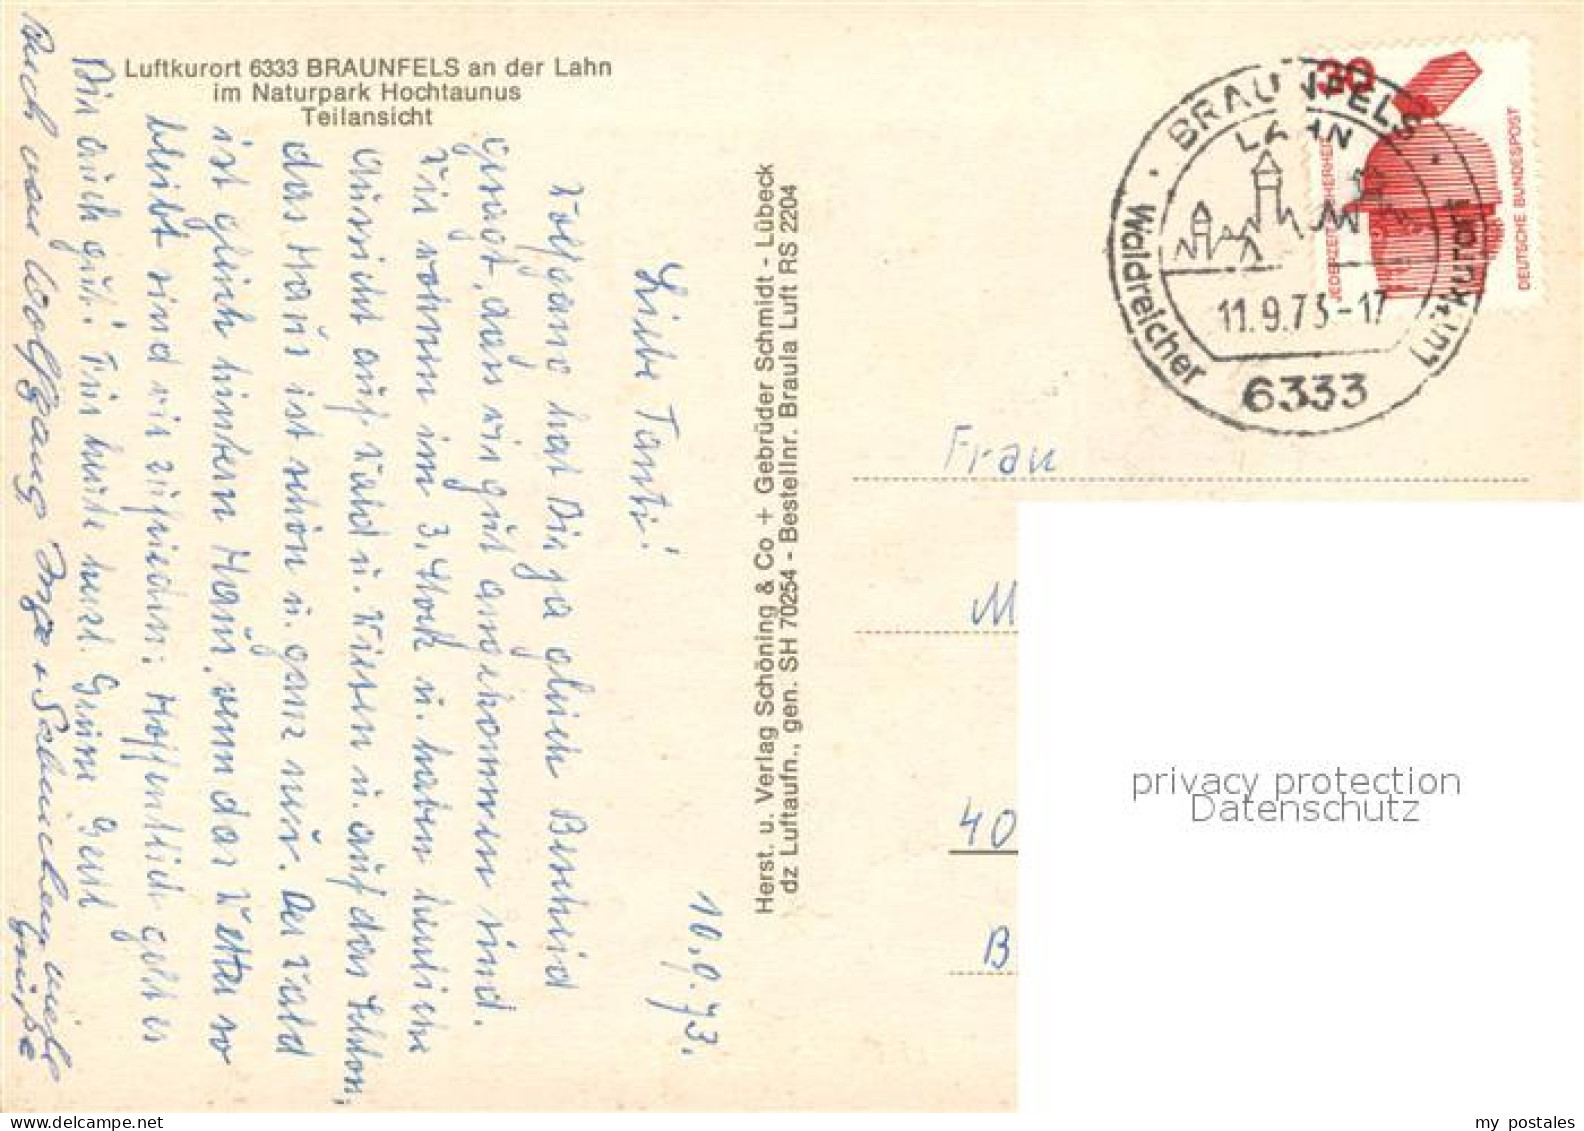 Luftkurort 6333 BRAUNFELS an der Lahn
im Naturpark Hochtaunus
Teilansicht
10.9.73.
Liebe Tanti!
Wolfgang hat Dir ja gleich Bescheid
gesagt, dass wir gut angekommen sind.
Wir wohnen im 3. Stock u. haben herrliche
Aussicht auf Wald u. Wiesen u. auf das Schloss,
das Haus ist schön u. ganz neu. Der Wald
ist gleich hinterm Haus, wenn das Wetter so
bleibt sind wir zufrieden. Hoffentlich geht es
Dir auch gut! Für heute herzl. Grüsse Gerda
Auch von Wolfgang, Inge + Sabinchen viele
Grüße
Herst. u. Verlag Schöning & Co + Gebrüder Schmidt - Lübeck
dz Luftaufn., gen. SH 70254 - Bestellnr. Braula Luft RS 2204
30
JEDERZEIT SICHERHEIT
DEUTSCHE BUNDESPOST
BRAUNFELS
LAHN
Waldreicher
Luftkurort
11.9.73-17
6333
Frau
M
40
B
privacy protection
Datenschutz
my postales